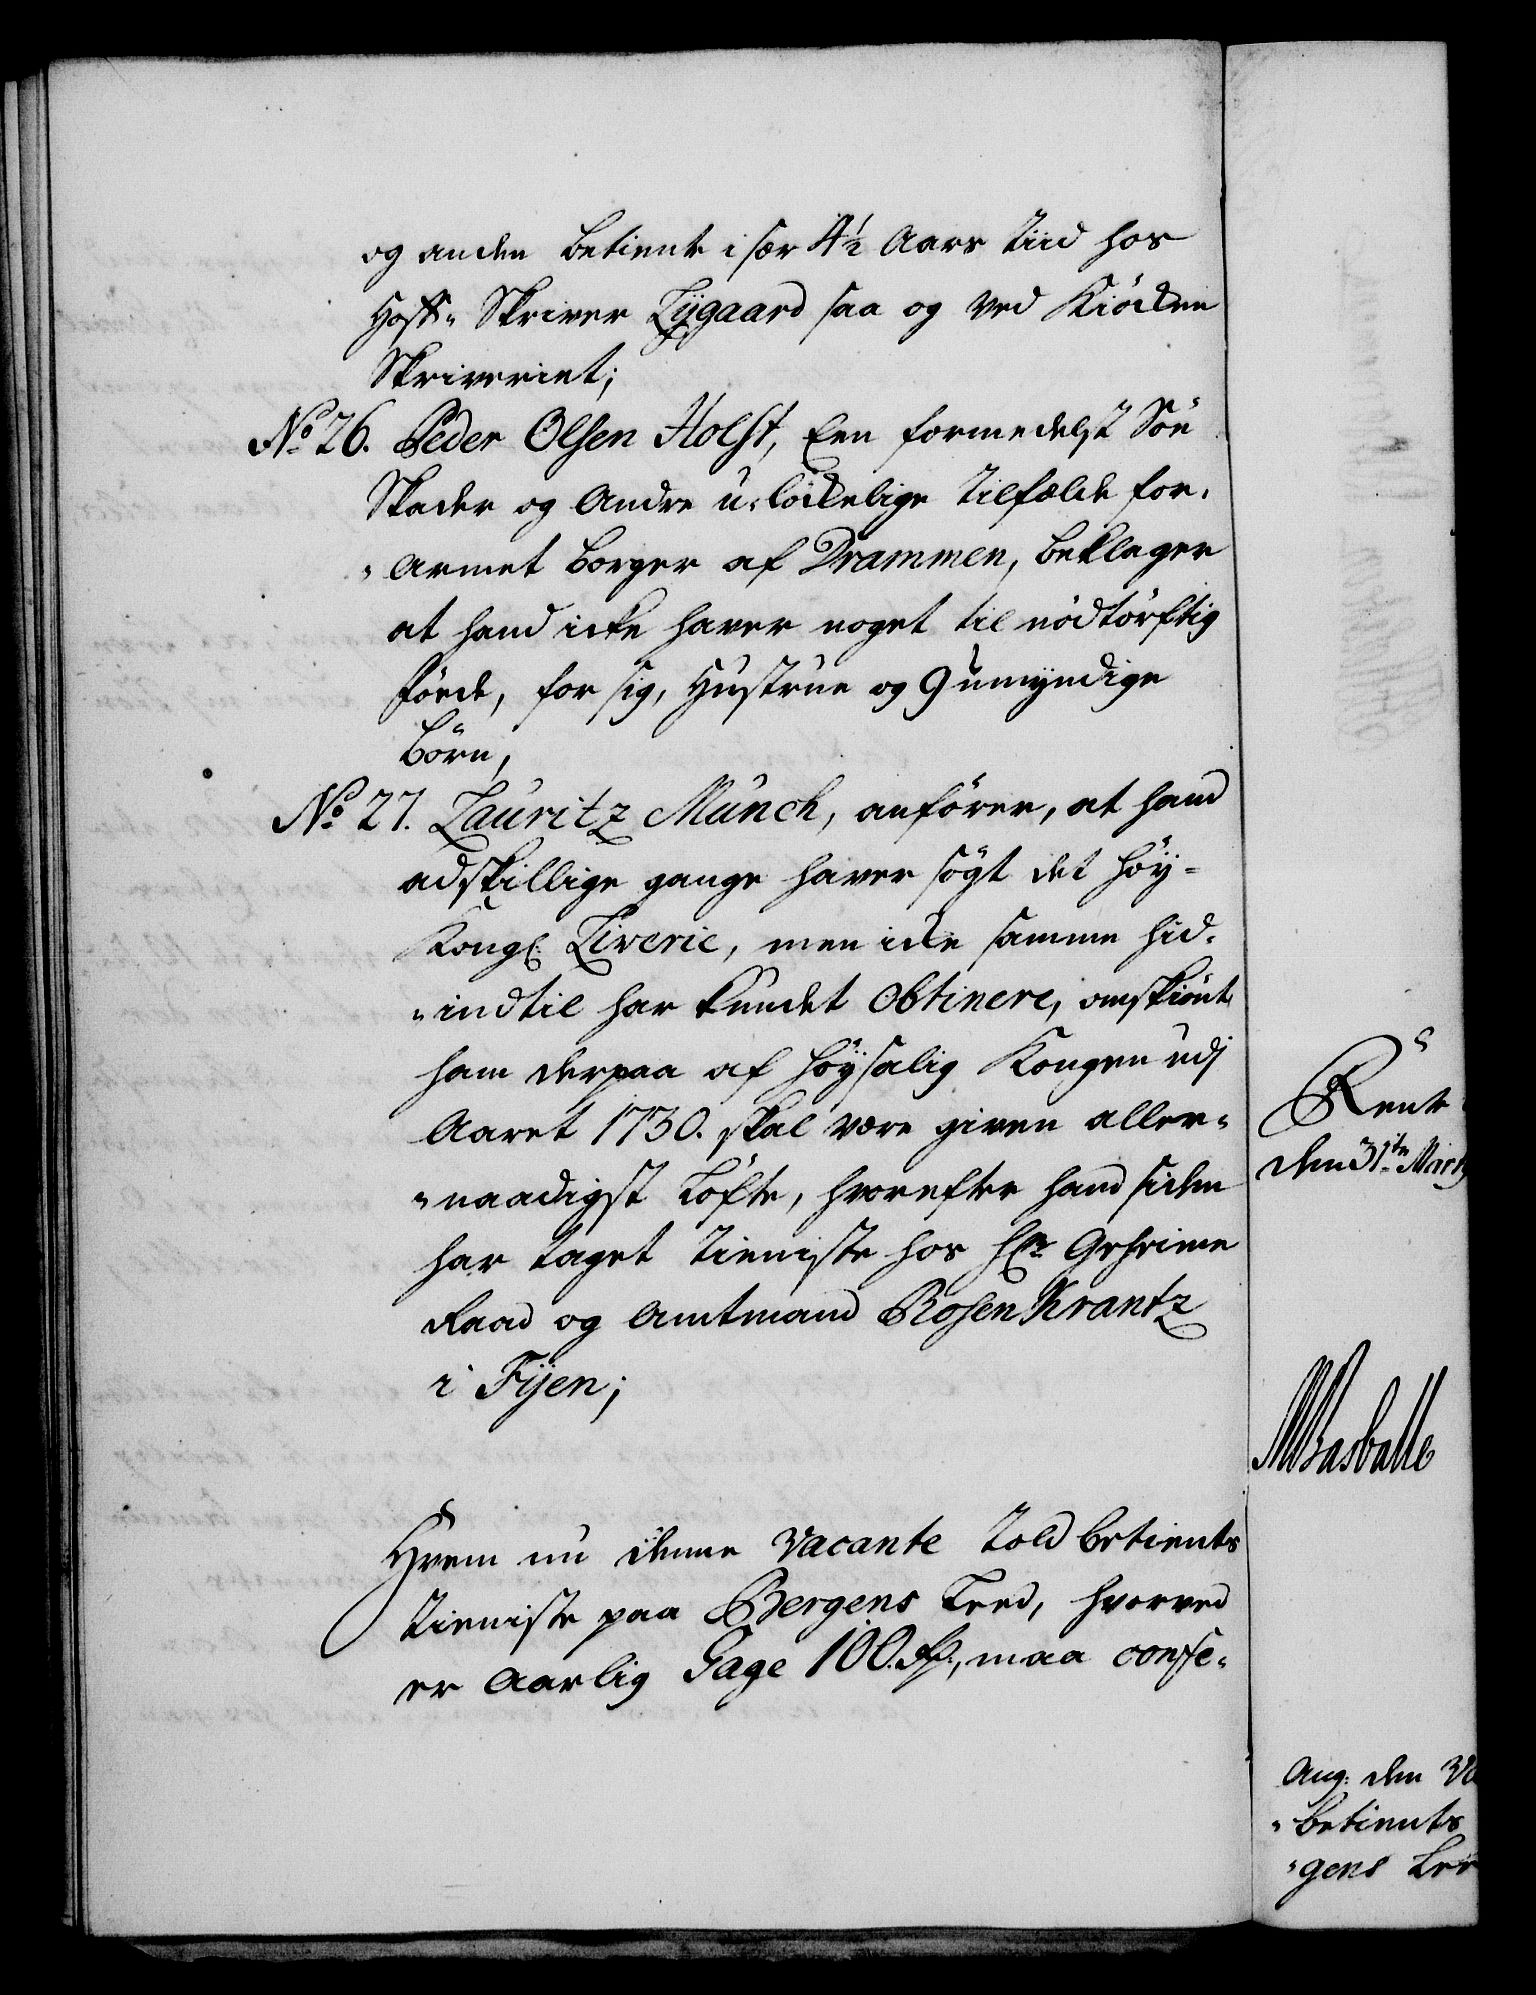 og anden betient i sær 4½ Aars Tiid hos
Hoff- Skriver Lÿgaard saa og ved Kiöcken
Skriveriet;
No 26. Peder Olsen Holst, Een formedelst Söe
Skader og Andre u-löckelige Tilfælde for-
-armet borger af Drammen, beklager
at hand icke haver noget til nödtörftig
föede, for sig, Hustrue og 9 umyndige
börn,
No 27. Lauritz Münch, anförer, at hand
adskillige gange haver sögt det höy-
Kongl: Liverie, men icke samme hid-
-indtil har kundet obtinere, omskiönt
ham derpaa af höysalig Kongen udj
Aaret 1730. skal være given aller-
-naadigst Löfte, hvorefter hand siden
har taget tieniste hos Hr Geheime
Raad og Amtmand Rosen Krantz
i Fÿen;
Hvem nu denne vacante Told betients
tieniste paa Bergens Leed, hvorved
er Aarlig Gage 100. Rd., maa confe-
Rente
den 31te Marty
Ang: den Va
-betients
-gens Lee